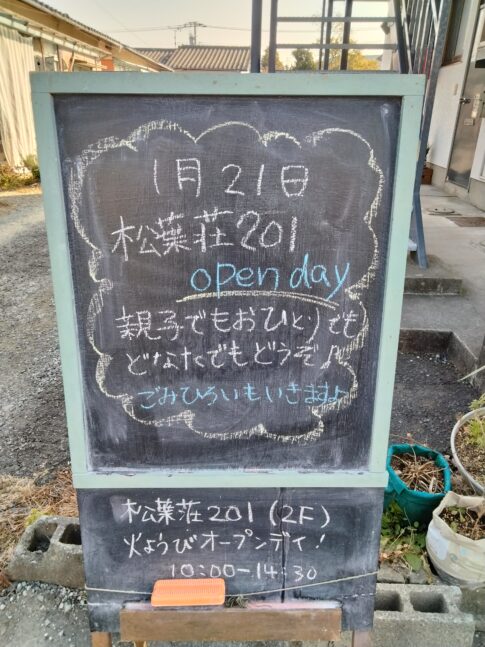 1月21日
松葉荘201
open day
親子でもおひとりでも
どなたでもどうぞ♪
ごみひろいもいきますよ
松葉荘201(2F)
火ようびオープンデイ!
10:00-14:30